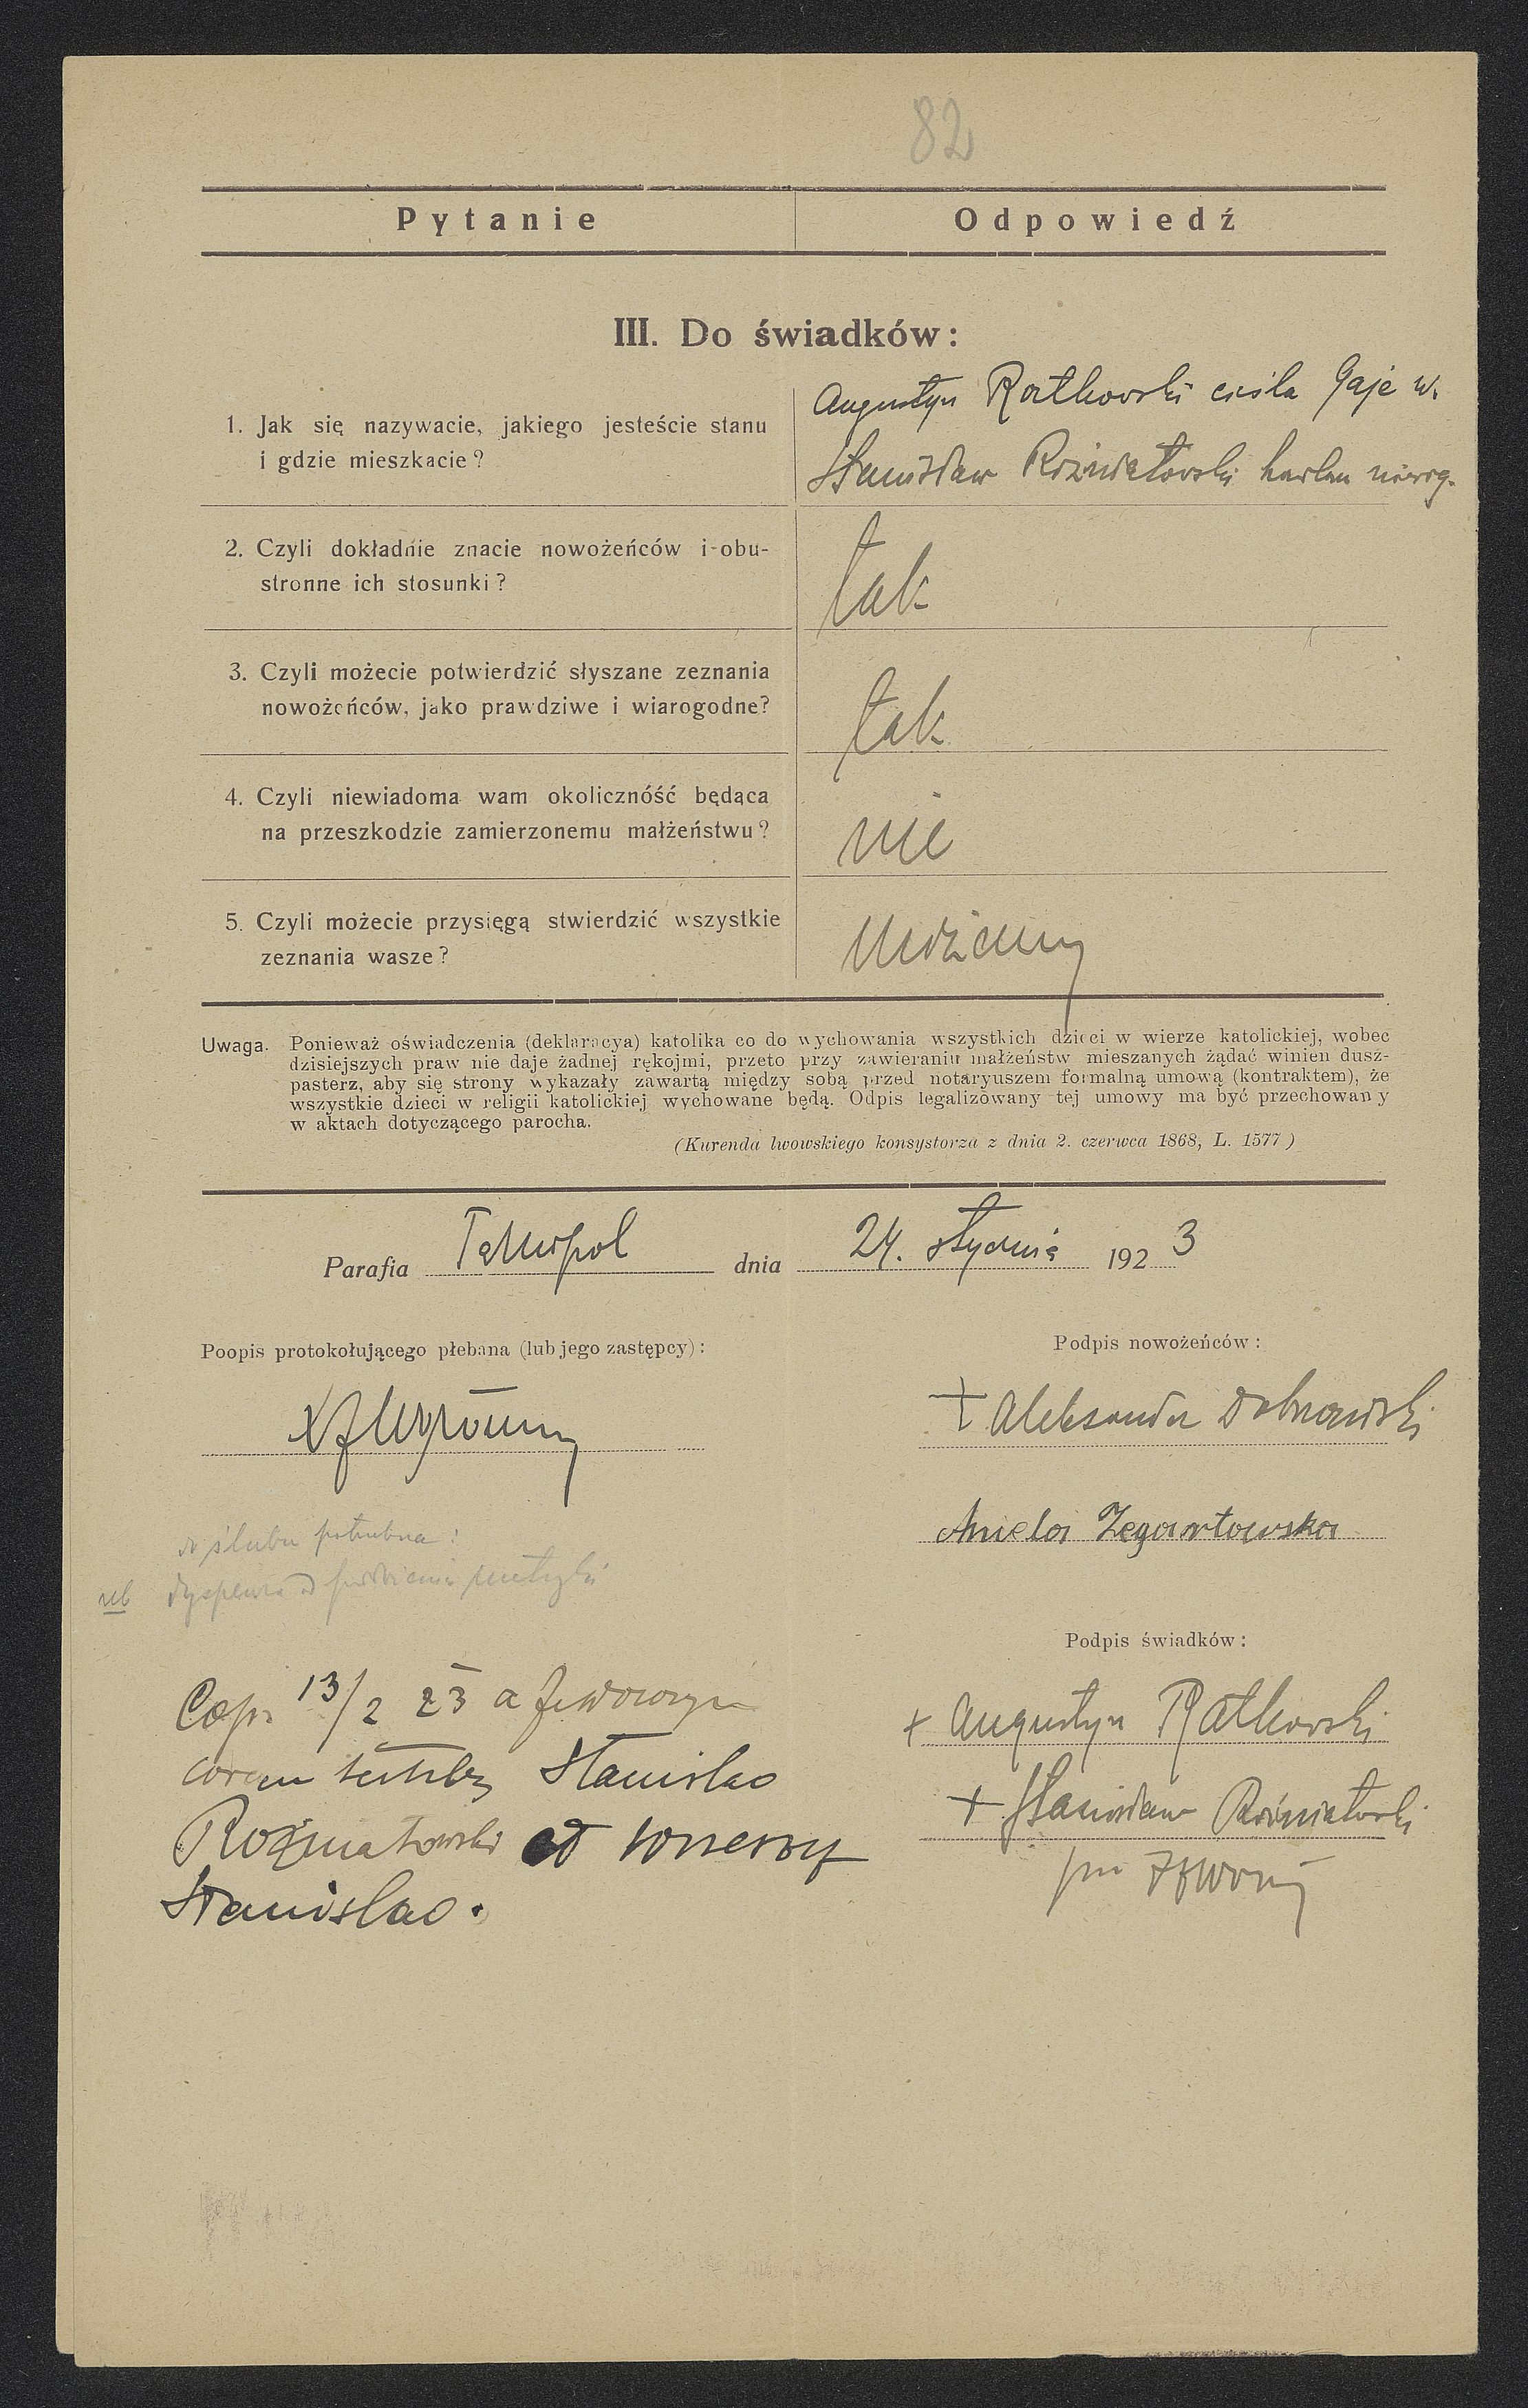 82
Pytanie Odpowiedź
III. Do świadków:
1. Jak się nazywacie, jakiego jesteście stanu
i gdzie mieszkacie?
Augustyn Ratkowski cieśla Gaje w.
Stanisław Rożniatowski
2. Czyli dokładnie znacie nowożeńców i obu-
stronne ich stosunki?
tak
3. Czyli możecie potwierdzić słyszane zeznania
nowożeńców, jako prawdziwe i wiarogodne?
tak
4. Czyli niewiadoma wam okolicznóść będąca
na przeszkodzie zamierzonemu małżeństwu?
nie
5. Czyli możecie przysięgą stwierdzić wszystkie
zeznania wasze?
możemy
Uwaga. Ponieważ oświadczenia (deklaracya) katolika co do wychowania wszystkich dzieci w wierze katolickiej, wobec
dzisiejszych praw nie daje żadnej rękojmi, przeto przy zawieraniu małżeństw mieszanych żądać winien dusz-
pasterz, aby się strony wykazały zawartą między sobą przed notaryuszem formalną umową (kontraktem), że
wszystkie dzieci w religii katolickiej wychowane będą. Odpis legalizowany tej umowy ma być przechowany
w aktach dotyczącego parocha.
(Kurenda lwowskiego konsystorza z dnia 2. czerwca 1868, L. 1577)
Parafia Tarnopol dnia 24. stycznia 1923
Poopis protokołującego plebana (lub jego zastępcy):
Podpis nowożeńców:
+ Aleksander Dobrowolski
Aniela Zegartowska
do ślubu potrzebna:
nb
metryki
Podpis świadków:
+ Augustyn Ratkowski
+ Stanisław Rożniatowski
Cop. 13/2 23 a
coram testibus Stanislao
Rożniatowski et
Stanislao.